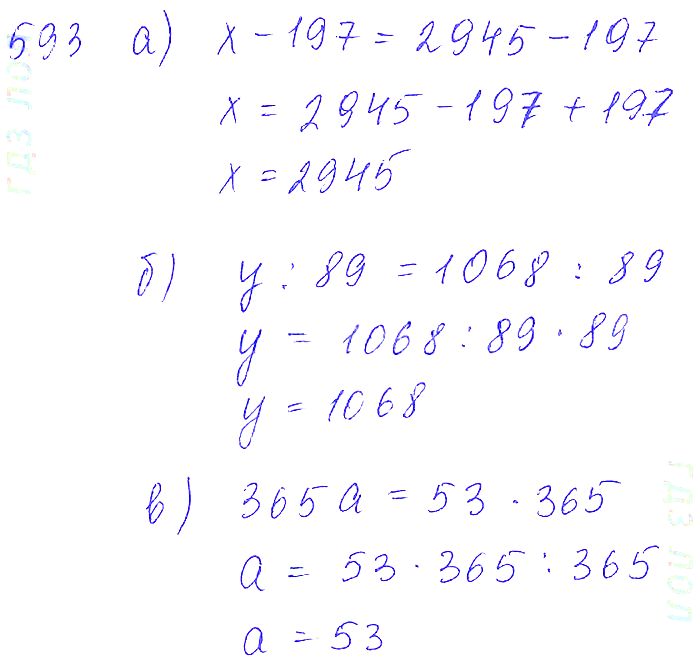 593 а) x - 197 = 2945 - 197
x = 2945 - 197 + 197
x = 2945
б) y : 89 = 1068 : 89
y = 1068 : 89 · 89
y = 1068
в) 365a = 53 · 365
a = 53 · 365 : 365
a = 53
гдз лол
гдз лол